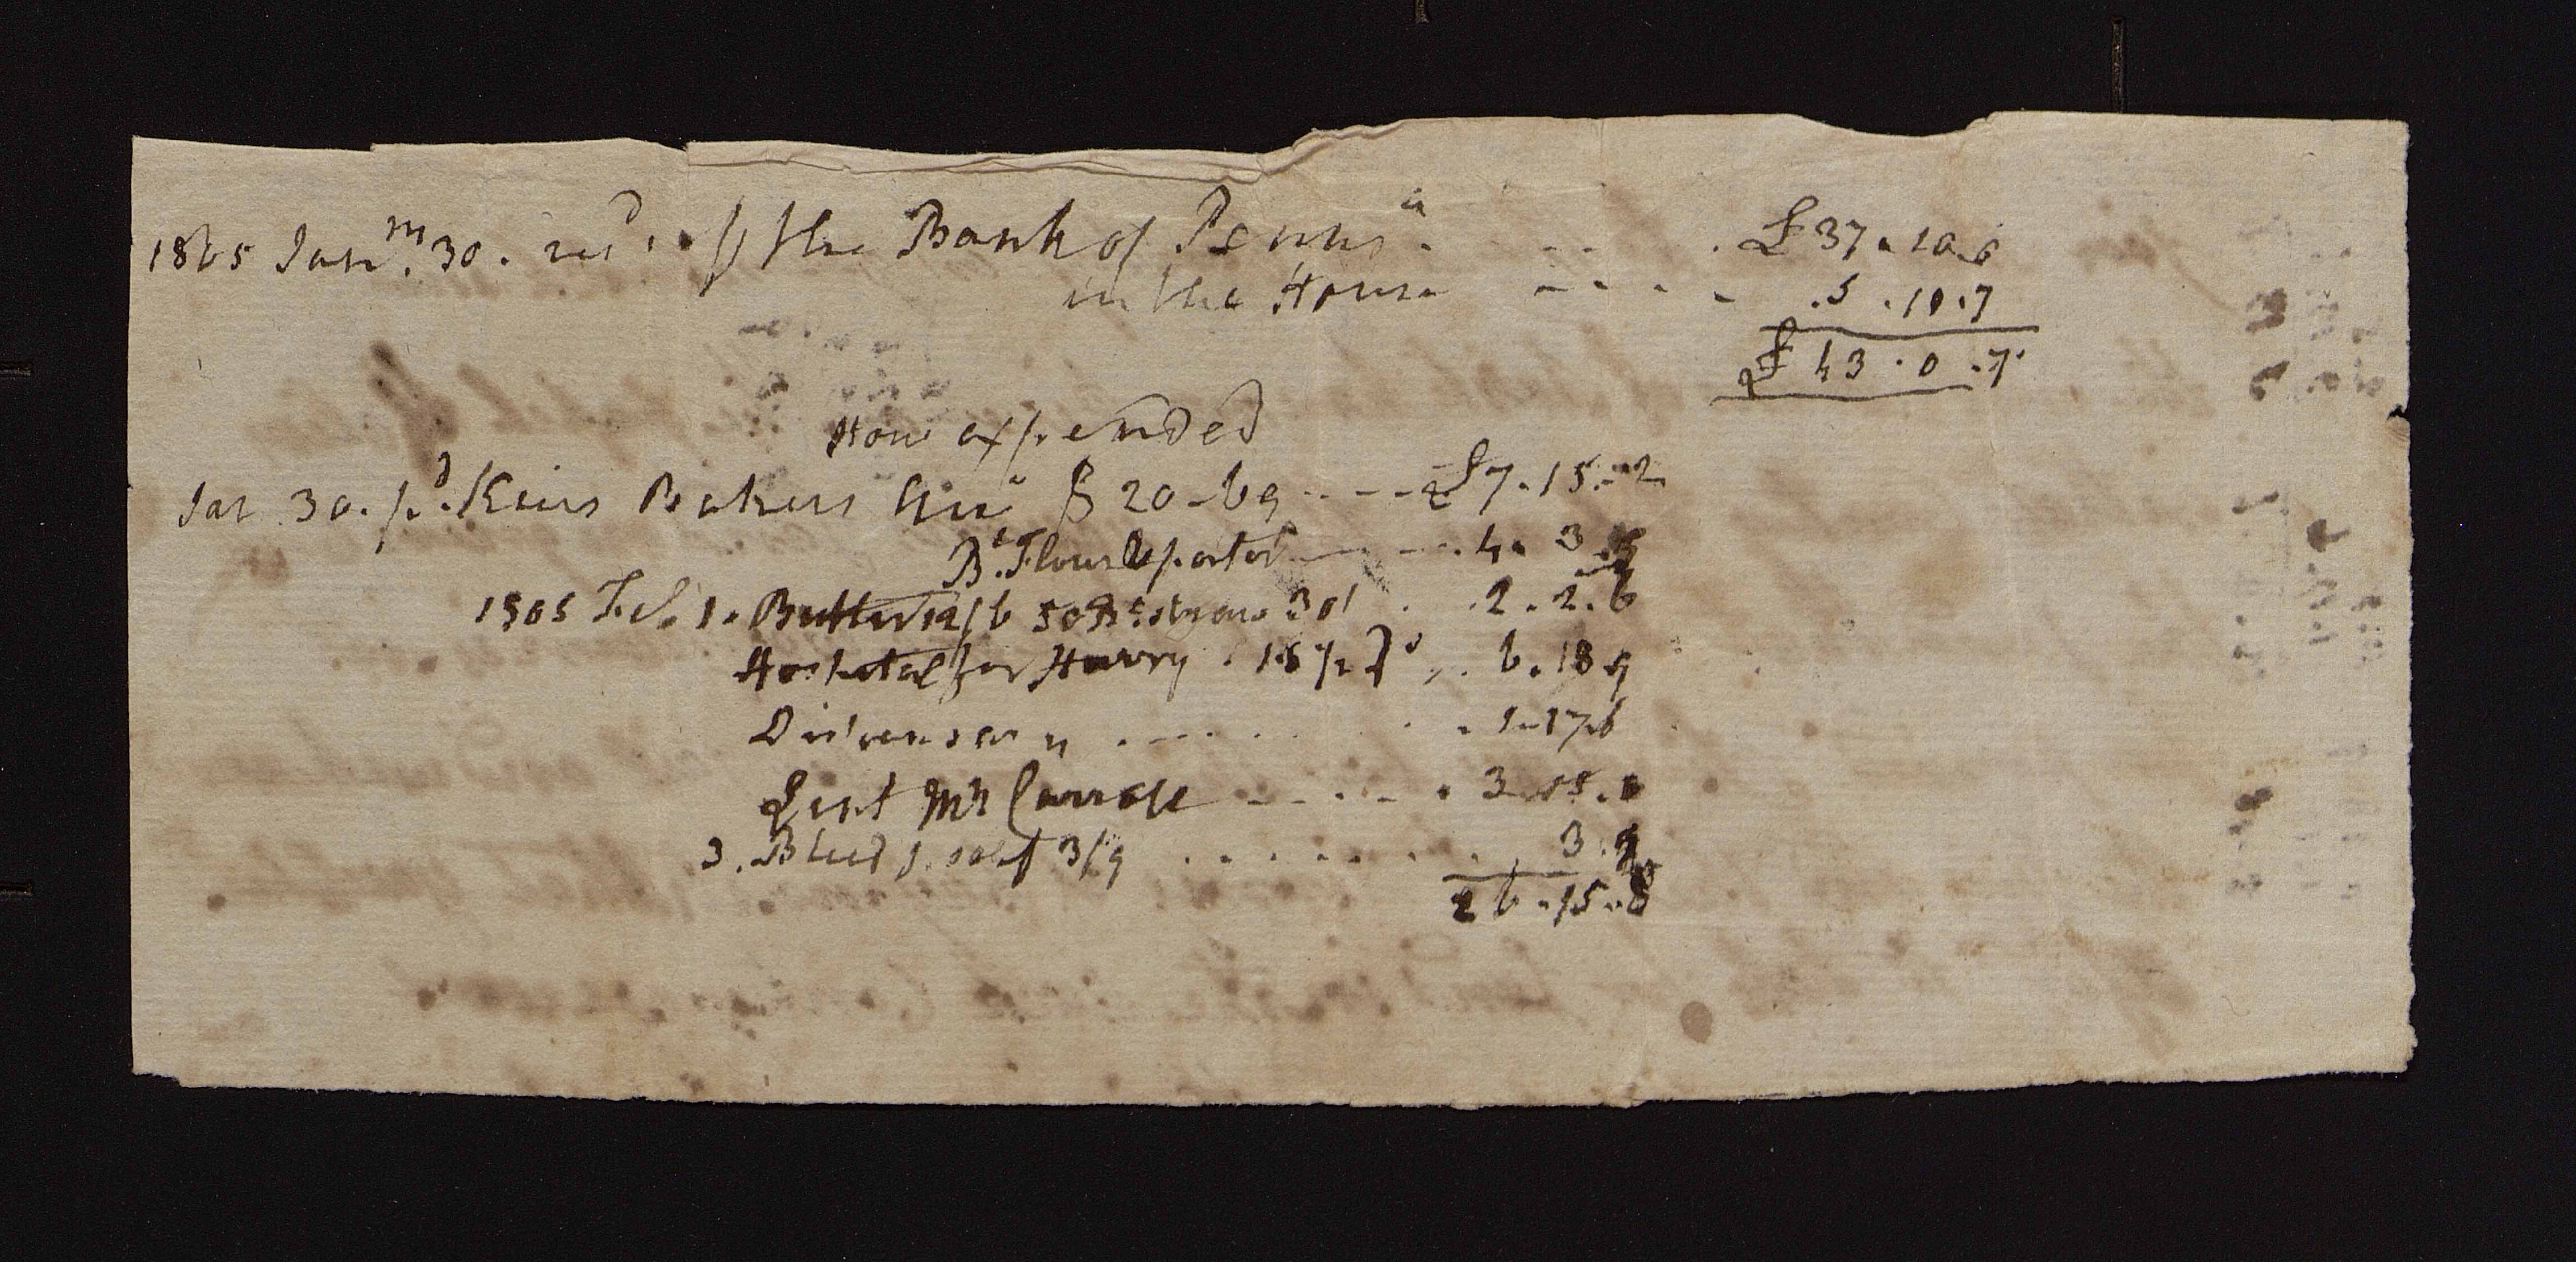 1805 Janry. 30. recd. of the Bank of Pennsa. . . . £37.10.0
in the House - - - - .5.10.7
£43.0.7.
How expended
Jan 30. pd. Keirs Bakers $20-69 - - - - £7.15.-2
Flour - - . 4. 3 . 9
1805 Feb. 1. Butter 12/6 straw 30/ . . 2.2.6
Hospital for Harry . 18 1/2 Ds . . 6.18.9
Dispensary . - - . . . . 1-17.6
Lent Mr - - . - . 3.15.0
3. Beef 3/9 . . . . . . . 3.9
26.15.8